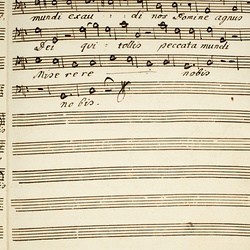 mundi exau ; di nos Domine agnus
Dei qui tollis peccata mundi
Mise re re nobis
no bis.